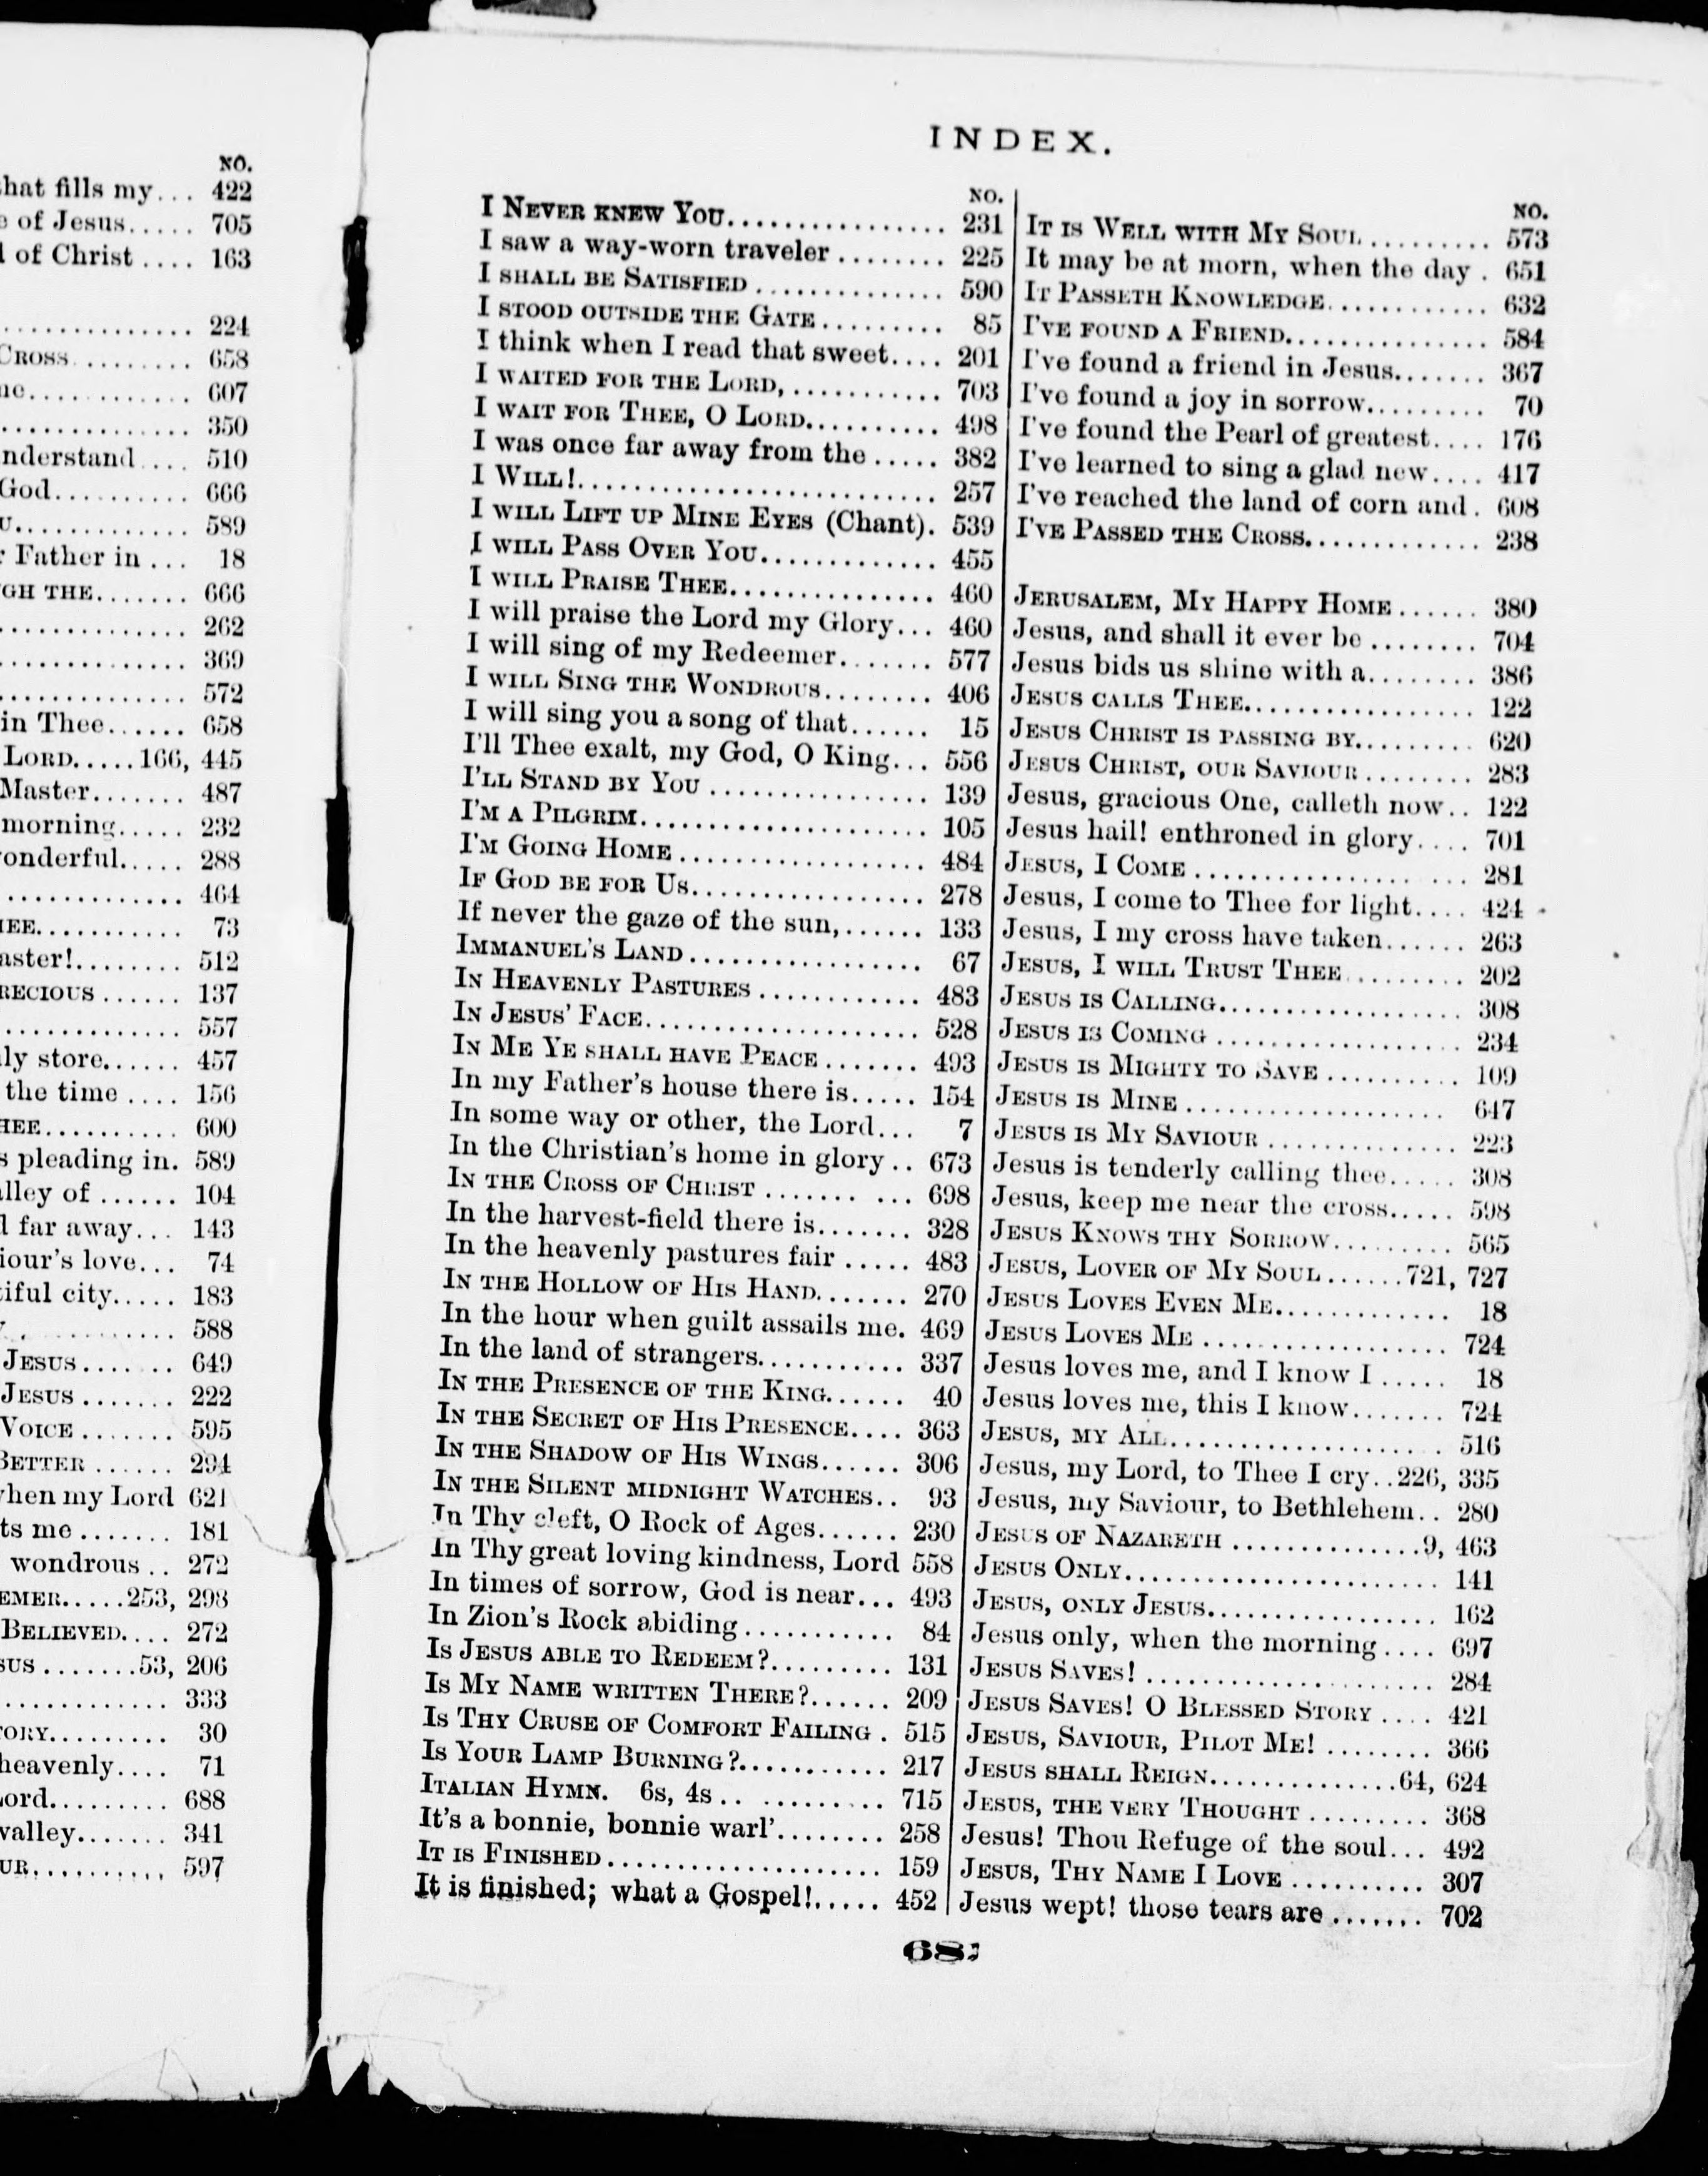 NO.
that fills my... 422
e of Jesus..... 705
l of Christ .... 163
.............. 224
CROSS......... 658
ne............ 607
.............. 350
nderstand.... 510
God.......... 666
U............. 589
r Father in ... 18
GH THE....... 666
.............. 262
.............. 369
.............. 572
in Thee...... 658
LORD.....166, 445
Master....... 487
morning..... 232
onderful..... 288
............. 464
HEE........... 73
aster!........ 512
RECIOUS ...... 137
............. 557
ly store...... 457
the time .... 156
HEE.......... 600
s pleading in. 589
alley of ...... 104
l far away... 143
iour's love... 74
tiful city..... 183
.......... 588
JESUS....... 649
JESUS ....... 222
VOICE ....... 595
BETTER ...... 294
when my Lord 621
ts me ....... 181
wondrous .. 272
EMER.....253, 298
BELIEVED.... 272
SUS .......53, 206
............ 333
TORY......... 30
heavenly.... 71
Lord......... 688
valley....... 341
UR.......... 597
INDEX.
NO.
I NEVER KNEW YOU................ 231
I saw a way-worn traveler ........ 225
I SHALL BE SATISFIED .............. 590
I STOOD OUTSIDE THE GATE......... 85
I think when I read that sweet.... 201
I WAITED FOR THE LORD,........... 703
I WAIT FOR THEE, O LORD.......... 498
I was once far away from the ..... 382
I WILL!........................... 257
I WILL LIFT UP MINE EYES (Chant). 539
I WILL PASS OVER YOU............. 455
I WILL PRAISE THEE............... 460
I will praise the Lord my Glory... 460
I will sing of my Redeemer....... 577
I WILL SING THE WONDROUS........ 406
I will sing you a song of that...... 15
I'll Thee exalt, my God, O King... 556
I'LL STAND BY YOU ................ 139
I'M A PILGRIM..................... 105
I'M GOING HOME .................. 484
IF GOD BE FOR US................. 278
If never the gaze of the sun,...... 133
IMMANUEL'S LAND ................. 67
IN HEAVENLY PASTURES ............ 483
IN JESUS' FACE.................... 528
IN ME YE SHALL HAVE PEACE ....... 493
In my Father's house there is..... 154
In some way or other, the Lord... 7
In the Christian's home in glory .. 673
IN THE CROSS OF CHRIST ....... ... 698
In the harvest-field there is....... 328
In the heavenly pastures fair ..... 483
IN THE HOLLOW OF HIS HAND....... 270
In the hour when guilt assails me. 469
In the land of strangers........... 337
IN THE PRESENCE OF THE KING...... 40
IN THE SECRET OF HIS PRESENCE.... 363
IN THE SHADOW OF HIS WINGS...... 306
IN THE SILENT MIDNIGHT WATCHES.. 93
In Thy cleft, O Rock of Ages...... 230
In Thy great loving kindness, Lord 558
In times of sorrow, God is near... 493
In Zion's Rock abiding........... 84
IS JESUS ABLE TO REDEEM?......... 131
IS MY NAME WRITTEN THERE?...... 209
IS THY CRUSE OF COMFORT FAILING . 515
IS YOUR LAMP BURNING?........... 217
ITALIAN HYMN. 6s, 4s .. ......... 715
It's a bonnie, bonnie warl'........ 258
IT IS FINISHED.................... 159
It is finished; what a Gospel!..... 452
NO.
IT IS WELL WITH MY SOUL ......... 573
It may be at morn, when the day . 651
IT PASSETH KNOWLEDGE............ 632
I'VE FOUND A FRIEND............... 584
I've found a friend in Jesus....... 367
I've found a joy in sorrow......... 70
I've found the Pearl of greatest.... 176
I've learned to sing a glad new.... 417
I've reached the land of corn and. 608
I'VE PASSED THE CROSS............. 238
JERUSALEM, MY HAPPY HOME ...... 380
Jesus, and shall it ever be ........ 704
Jesus bids us shine with a........ 386
JESUS CALLS THEE................. 122
JESUS CHRIST IS PASSING BY......... 620
JESUS CHRIST, OUR SAVIOUR ........ 283
Jesus, gracious One, calleth now.. 122
Jesus hail! enthroned in glory.... 701
JESUS, I COME .................... 281
Jesus, I come to Thee for light.... 424
Jesus, I my cross have taken...... 263
JESUS, I WILL TRUST THEE......... 202
JESUS IS CALLING.................. 308
JESUS IS COMING .................. 234
JESUS IS MIGHTY TO SAVE .......... 109
JESUS IS MINE ................... 647
JESUS IS MY SAVIOUR .............. 223
Jesus is tenderly calling thee..... 308
Jesus, keep me near the cross..... 598
JESUS KNOWS THY SORROW......... 565
JESUS, LOVER OF MY SOUL......721, 727
JESUS LOVES EVEN ME............. 18
JESUS LOVES ME .................. 724
Jesus loves me, and I know I ..... 18
Jesus loves me, this I know....... 724
JESUS, MY ALL.................... 516
Jesus, my Lord, to Thee I cry..226, 335
Jesus, my Saviour, to Bethlehem.. 280
JESUS OF NAZARETH ..............9, 463
JESUS ONLY....................... 141
JESUS, ONLY JESUS................. 162
Jesus only, when the morning.... 697
JESUS SAVES! ..................... 284
JESUS SAVES! O BLESSED STORY .... 421
JESUS, SAVIOUR, PILOT ME! ........ 366
JESUS SHALL REIGN..............64, 624
JESUS, THE VERY THOUGHT ......... 368
Jesus! Thou Refuge of the soul... 492
JESUS, THY NAME I LOVE .......... 307
Jesus wept! those tears are ....... 702